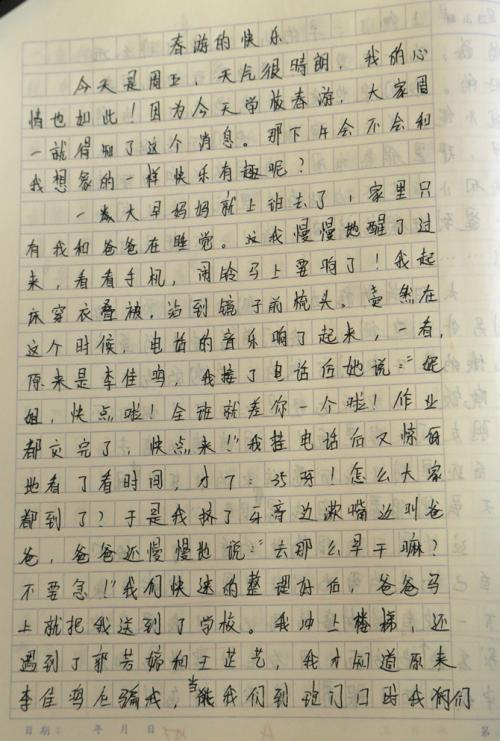 春游的快乐
今天是周五，天气很晴朗，我的心
情也如此！因为今天学校春游，大家周
一就得知了这个消息。那下午会不会和
我想象的一样快乐有趣呢？
一大早妈妈就上班去了，家里只
有我和爸爸在睡觉。这我慢慢地醒了过
来，看看手机，闹铃马上要响了！我起
床穿衣叠被，站到镜子前梳头。竟然在
这个时候，电话的音乐响了起来，一看，
原来是李佳鸣，我接了电话后她说：“姐
姐，快点啦！全班就差你一个啦！作业
都交完了，快点来！”我挂电话后又惊讶
地看了看时间，才7：35呀！怎么大家
都到了？于是我挤了牙膏边漱嘴边叫爸
爸，爸爸还慢慢地说：“去那么早干嘛？
不要急！”我们快速的整理好后，爸爸马
上就把我送到了学校。我冲上楼梯，还
遇到了郭芳婷和王芷艺，我才知道原来
李佳鸣在骗我，当我们到班门口时我们
日期： 年 月 日 第